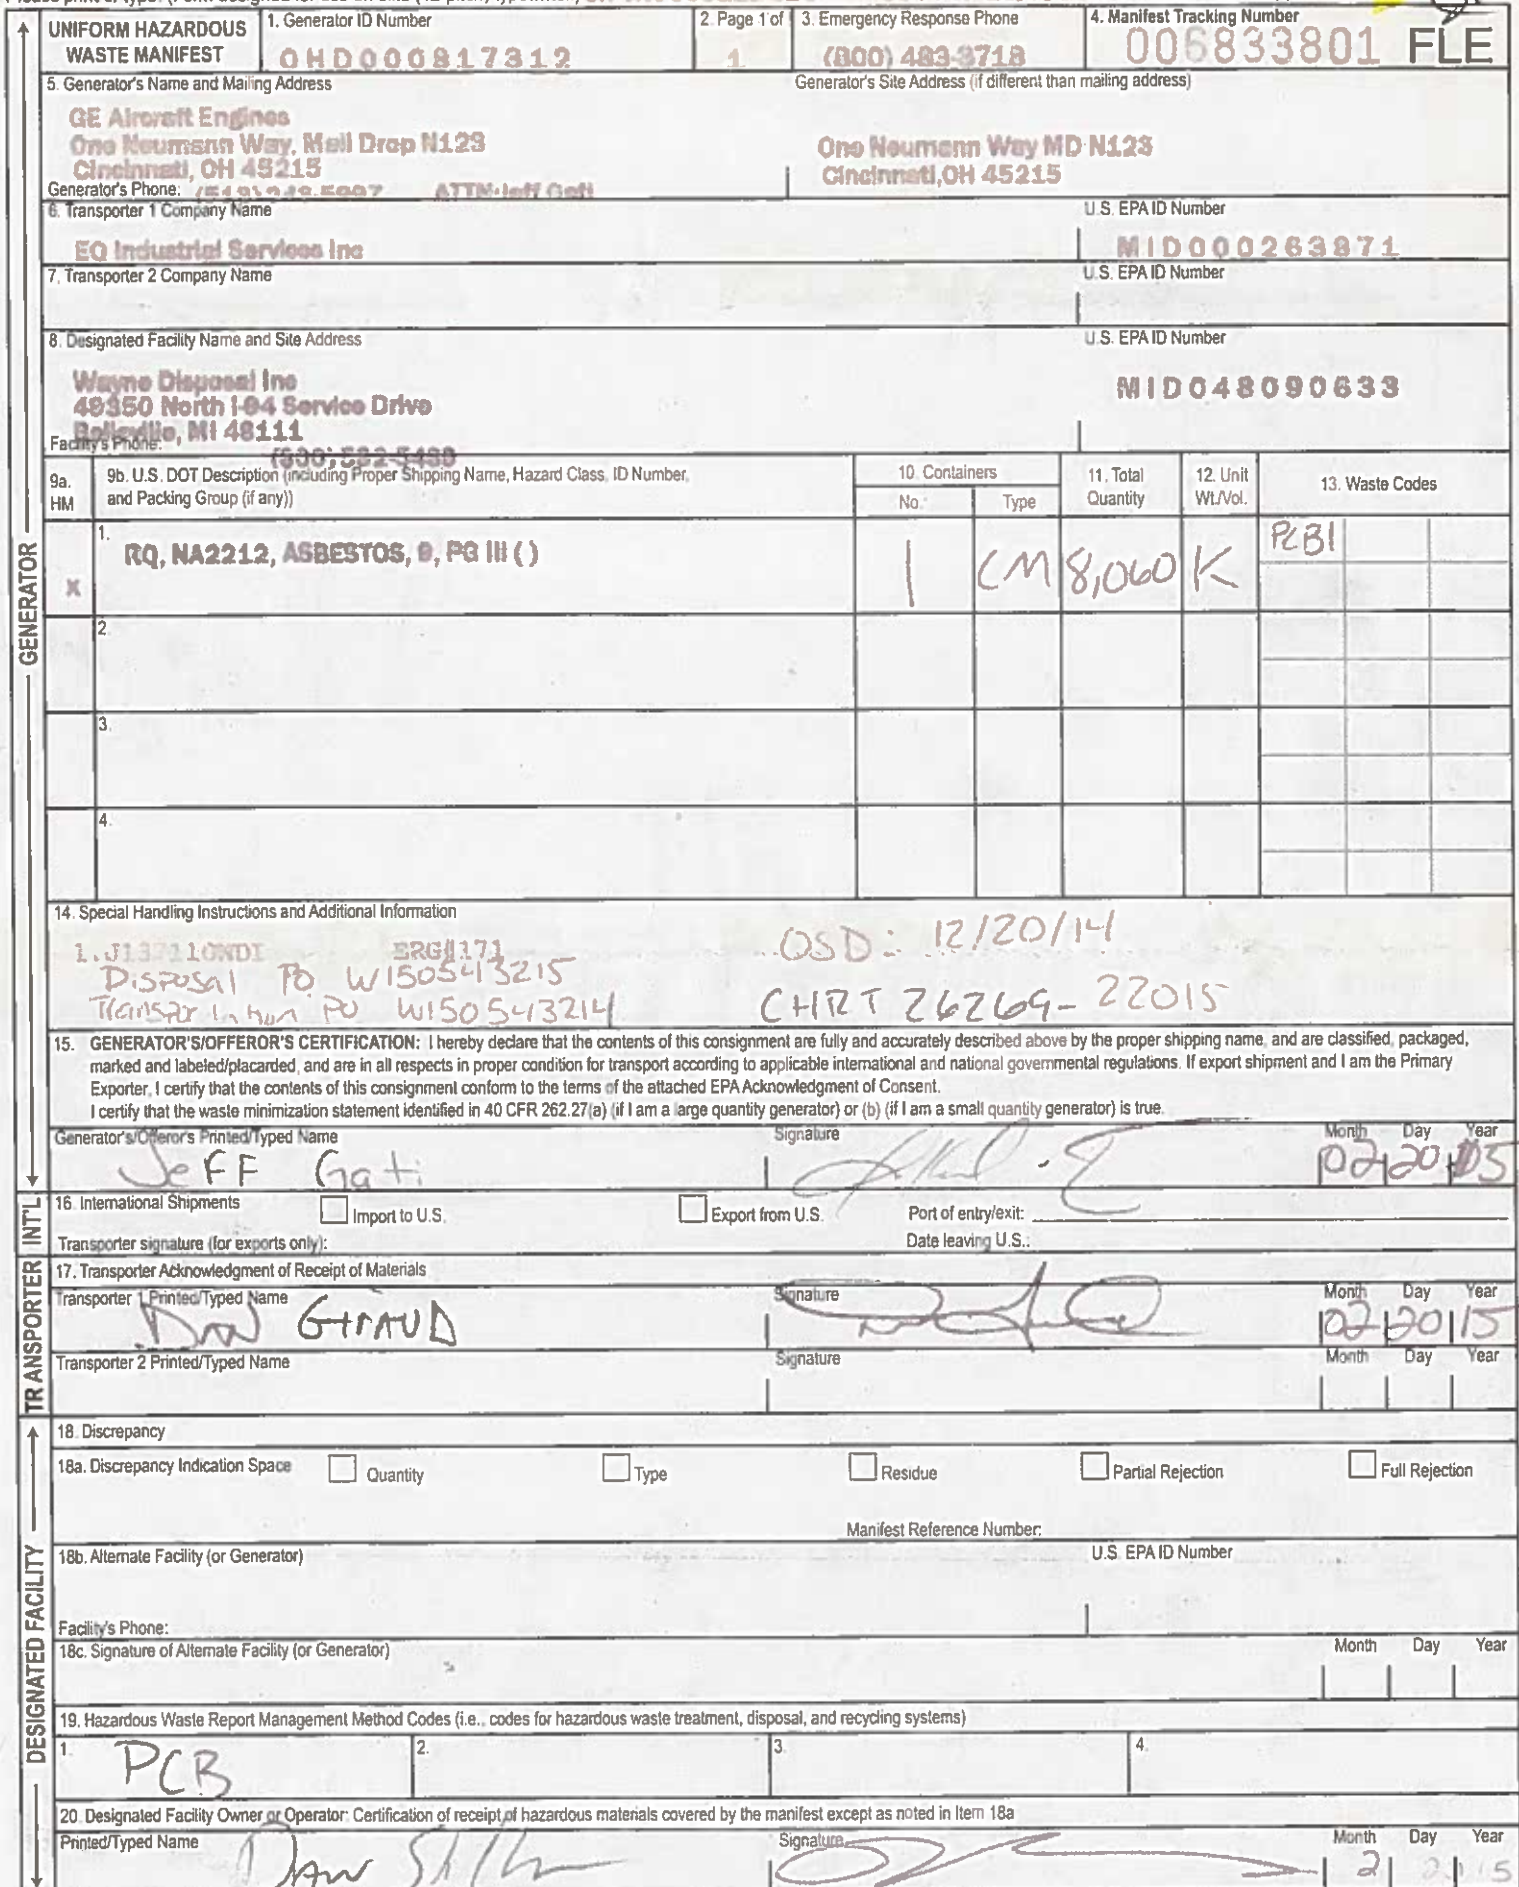 UNIFORM HAZARDOUS WASTE MANIFEST
1. Generator ID Number
OHD000817312
2. Page 1 of
1
3. Emergency Response Phone
(800) 483-3718
4. Manifest Tracking Number
006833801 FLE
5. Generator's Name and Mailing Address
Generator's Site Address (if different than mailing address)
GE Aircraft Engines
One Neumann Way, Mail Drop N123
Cincinnati, OH 45215
One Neumann Way MD N123
Cincinnati, OH 45215
Generator's Phone:
ATTN:Jeff Gati
6. Transporter 1 Company Name
U.S. EPA ID Number
EQ Industrial Services Inc
MID000263871
7. Transporter 2 Company Name
U.S. EPA ID Number
8. Designated Facility Name and Site Address
U.S. EPA ID Number
Wayne Disposal Inc
49350 North I-94 Service Drive
Belleville, MI 48111
MID048090633
Facility's Phone:
(800) 592-5489
9a. HM
9b. U.S. DOT Description (including Proper Shipping Name, Hazard Class, ID Number, and Packing Group (if any))
10. Containers
No.
Type
11. Total Quantity
12. Unit Wt./Vol.
13. Waste Codes
X
1.
RQ, NA2212, ASBESTOS, 9, PG III ( )
1
CM
8,060
K
PCB1
2.
3.
4.
14. Special Handling Instructions and Additional Information
ERG#171
OSD: 12/20/14
Disposal PO W150543215
PO W150543214
CHRT 26269-22015
15. GENERATOR'S/OFFEROR'S CERTIFICATION: I hereby declare that the contents of this consignment are fully and accurately described above by the proper shipping name, and are classified, packaged,
marked and labeled/placarded, and are in all respects in proper condition for transport according to applicable international and national governmental regulations. If export shipment and I am the Primary
Exporter, I certify that the contents of this consignment conform to the terms of the attached EPA Acknowledgment of Consent.
I certify that the waste minimization statement identified in 40 CFR 262.27(a) (if I am a large quantity generator) or (b) (if I am a small quantity generator) is true.
Generator's/Offeror's Printed/Typed Name
Signature
Month Day Year
Jeff Gati
02 20 15
16. International Shipments
Import to U.S.
Export from U.S.
Port of entry/exit:
Transporter signature (for exports only):
Date leaving U.S.:
17. Transporter Acknowledgment of Receipt of Materials
Transporter 1 Printed/Typed Name
Signature
Month Day Year
02 20 15
Transporter 2 Printed/Typed Name
Signature
Month Day Year
18. Discrepancy
18a. Discrepancy Indication Space
Quantity
Type
Residue
Partial Rejection
Full Rejection
Manifest Reference Number:
18b. Alternate Facility (or Generator)
U.S. EPA ID Number
Facility's Phone:
18c. Signature of Alternate Facility (or Generator)
Month Day Year
19. Hazardous Waste Report Management Method Codes (i.e., codes for hazardous waste treatment, disposal, and recycling systems)
1.
PCB
2.
3.
4.
20. Designated Facility Owner or Operator: Certification of receipt of hazardous materials covered by the manifest except as noted in Item 18a
Printed/Typed Name
Signature
Month Day Year
GENERATOR
INT'L
TRANSPORTER
DESIGNATED FACILITY